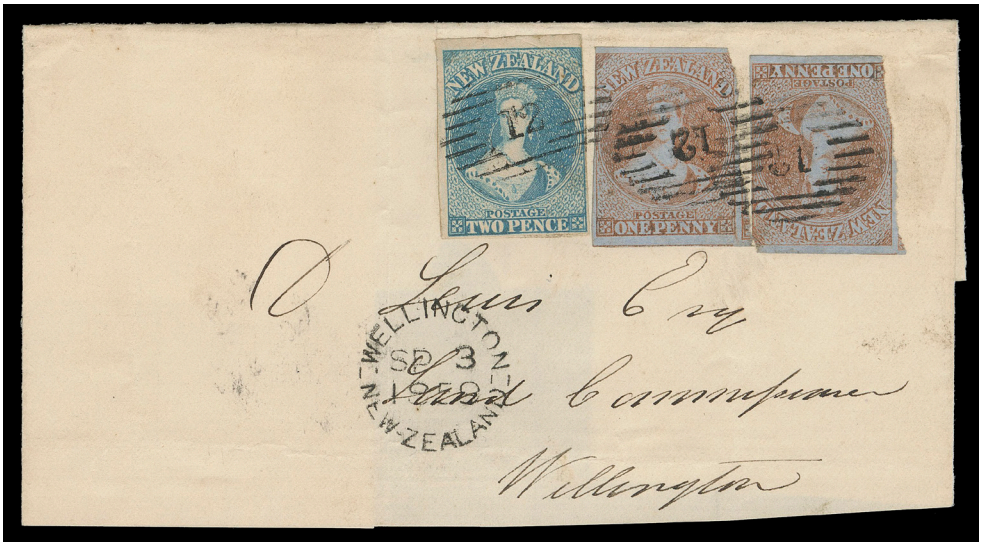 NEW ZEALAND
12
POSTAGE
TWO PENCE
NEW ZEALAND
12
POSTAGE
ONE PENNY
NEW ZEALAND
12
POSTAGE
ONE PENNY
D Lewis Esq
Land Commissioner
Wellington
WELLINGTON
SP 3
NEW-ZEALAND